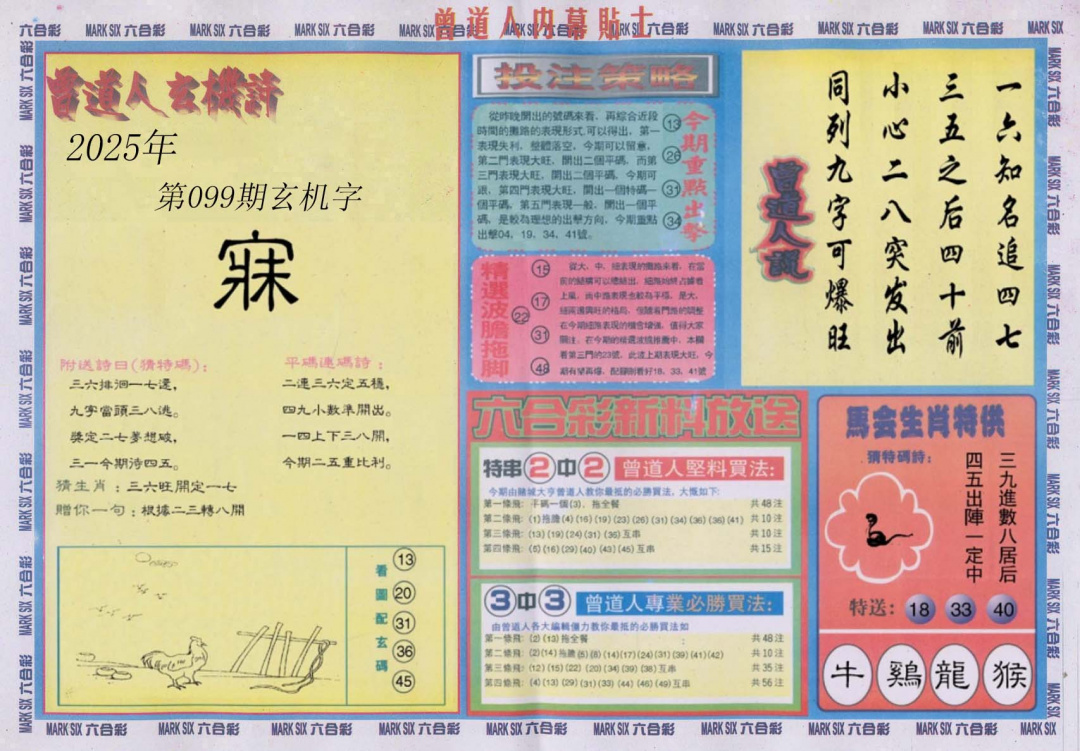 曾道人内幕貼士
MARK SIX 六合彩
曾道人玄機詩
2025年
第099期玄机字
寐
附送詩曰(猜特碼):
三六排徊一七還,
九字當頭三八逃。
獎定二七夢想破,
三一今期待四五。
平碼連碼詩:
二連三六定五穩,
四九小數準開出。
一四上下三八開,
今期二五重比利。
猜生肖:三六旺開定一七
贈你一句:根據二三轉八開
看圖配玄碼
13
20
31
36
45
投注策略
從昨晚開出的號碼來看,再綜合近段
時間的攤路的表現形式,可以得出,第一
表現失利,整體落空,今期可以留意,
第二門表現大旺,開出二個平碼,而第
三門表現大旺,開出二個平碼,今期可
跟,第四門表現大旺,開出一個特碼一
個平碼,第五門表現一般,開出一個平
碼,是較為理想的出擊方向,今期重點
出擊04,19,34,41號。
13
26
31
34
今期重點出擊
精選波膽拖脚
15
17
22
31
48
一六知名追四七
三五之后四十前
小心二八突发出
同列九字可爆旺
曾道人說
六合彩新料放送
特串2中2 曾道人堅料買法:
今期由賭城大亨曾道人教你最抵的必勝買法,大慨如下:
第一條飛: 平碼一個(3),拖全餐 共48注
第二條飛: (1)拖膽(4)(16)(19)(23)(26)(31)(34)(36)(36)(41) 共10注
第三條飛: (13)(19)(24)(31)(36)互串 共10注
第四條飛: (5)(16)(29)(40)(43)(45)互串 共15注
3中3 曾道人專業必勝買法:
由曾道人各大編輯僵力教你最抵的必勝買法如
第一條飛: (2)(13)拖全餐 共48注
第二條飛: (2)(14)拖膽(5)(8)(14)(17)(24)(31)(39)(41)(42) 共10注
第三條飛: (12)(15)(22)(20)(34)(39)(38)互串 共35注
第四條飛: (4)(13)(29)(31)(33)(44)(46)(49)互串 共56注
馬会生肖特供
猜特碼詩:
三九進數八居后
四五出陣一定中
特送: 18 33 40
牛 鷄 龍 猴